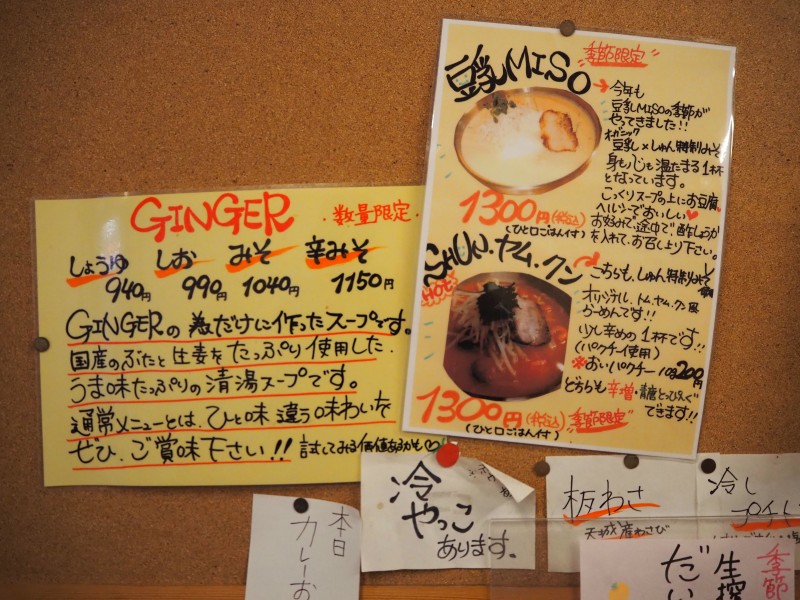 GINGER 数量限定
しょうゆ しお みそ 辛みそ
940円 990円 1040円 1150円
GINGERの為だけに作ったスープです。
国産のぶたと生姜をたっぷり使用した
うま味たっぷりの清湯スープです。
通常メニューとは、ひと味違う味わいを
ぜひ、ご賞味下さい!! 試してみる価値あるかも♡
豆乳MISO 季節限定
今年も
豆乳MISOの季節が
やってきました!!
オーガニック
豆乳×しゅん特制みそ
身も心も温たまる1杯
となっています。
こっくりスープの上にお豆腐。
ヘルシーでおいしい♥
お好みで途中で酢しょうが
を入れて、お召し上り下さい。
1300円(税込)
(ひと口ごはん付)
SHUN.ヤム.クン
HOT!
こちらも、しゅん特制みそ
使用
オリジナル、トム、ヤム、クン風
らーめんです!!
少し辛めの1杯です!!
(パクチー使用)
※おいパクチー 10g200円
どちらも辛増・
できます!!
1300円(税込) 季節限定
(ひと口ごはん付)
冷
やっこ
あります。
板わさ
天城産わさび
冷し
プチし
本日
カレーお
季節
生搾
だい